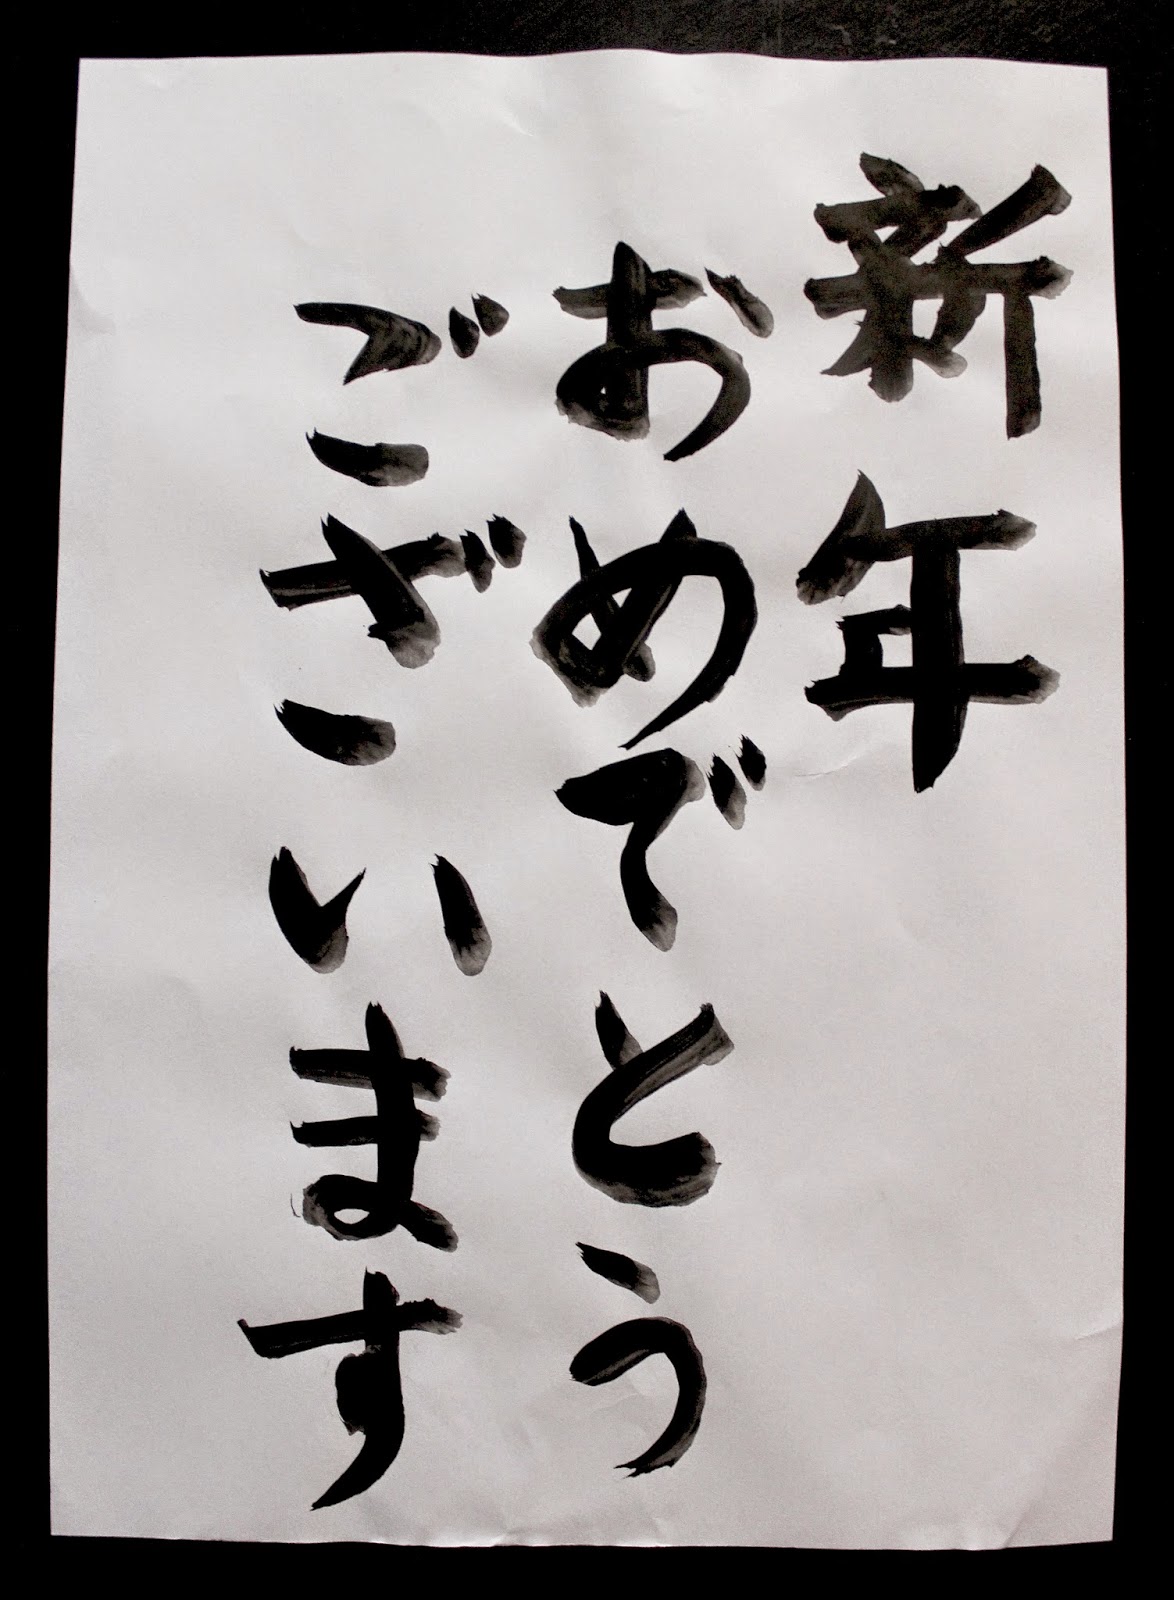 新年
おめでとう
ございます